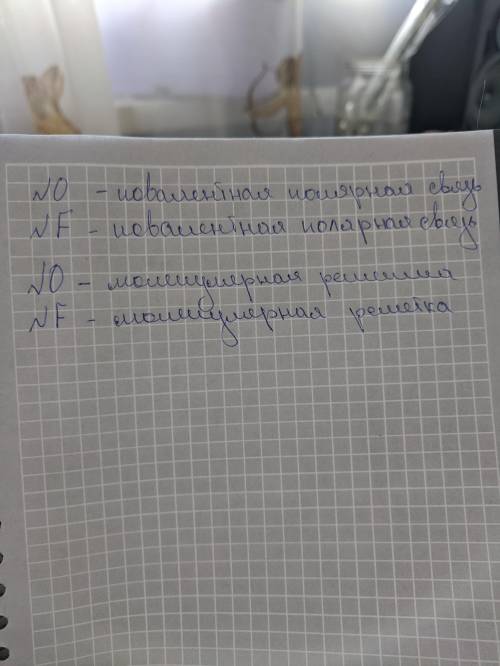 NO - ковалентная полярная связь
NF - ковалентная полярная связь
NO - молекулярная решетка
NF - молекулярная решетка